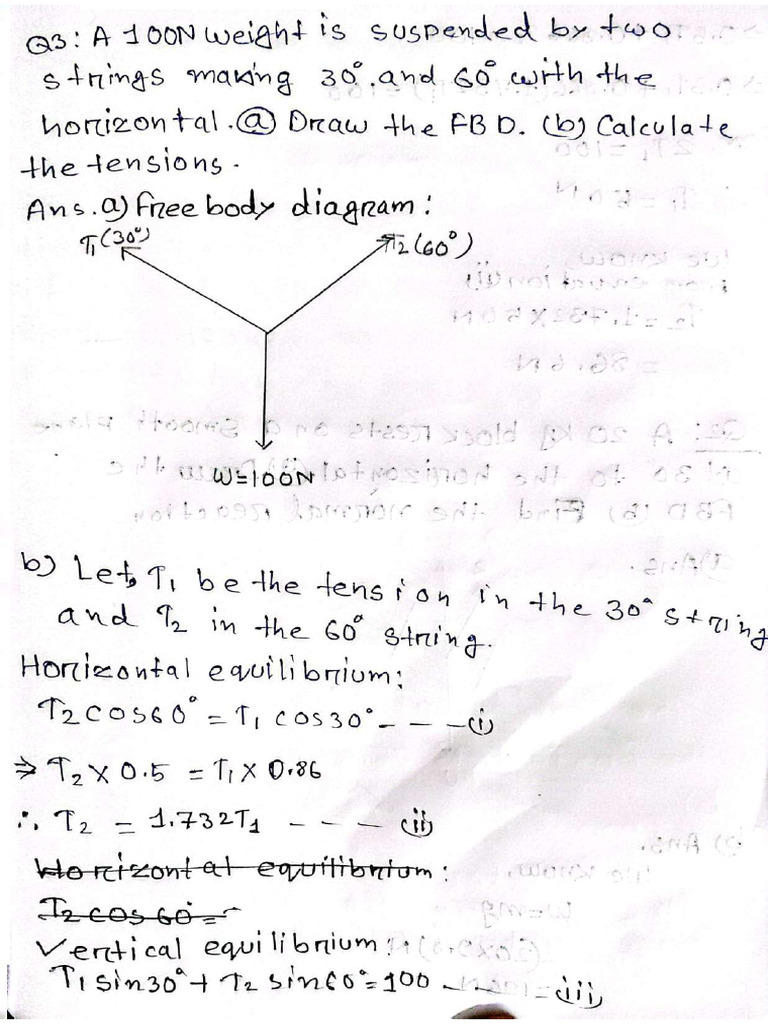 Q3: A 100N weight is suspended by two
strings making 30° and 60° with the
horizontal. (a) Draw the FBD. (b) Calculate
the tensions.
Ans. a) Free body diagram:
T1 (30°) T2 (60°)
W=100N
b) Let, T1 be the tension in the 30° string
and T2 in the 60° string.
Horizontal equilibrium:
T2 cos60° = T1 cos30° - - - (i)
⇒ T2 × 0.5 = T1 × 0.86
∴ T2 = 1.732T1 - - - (ii)
Horizontal equilibrium:
T2 cos 60° =
Vertical equilibrium:
T1 sin30° + T2 sin60° = 100 - - - (iii)